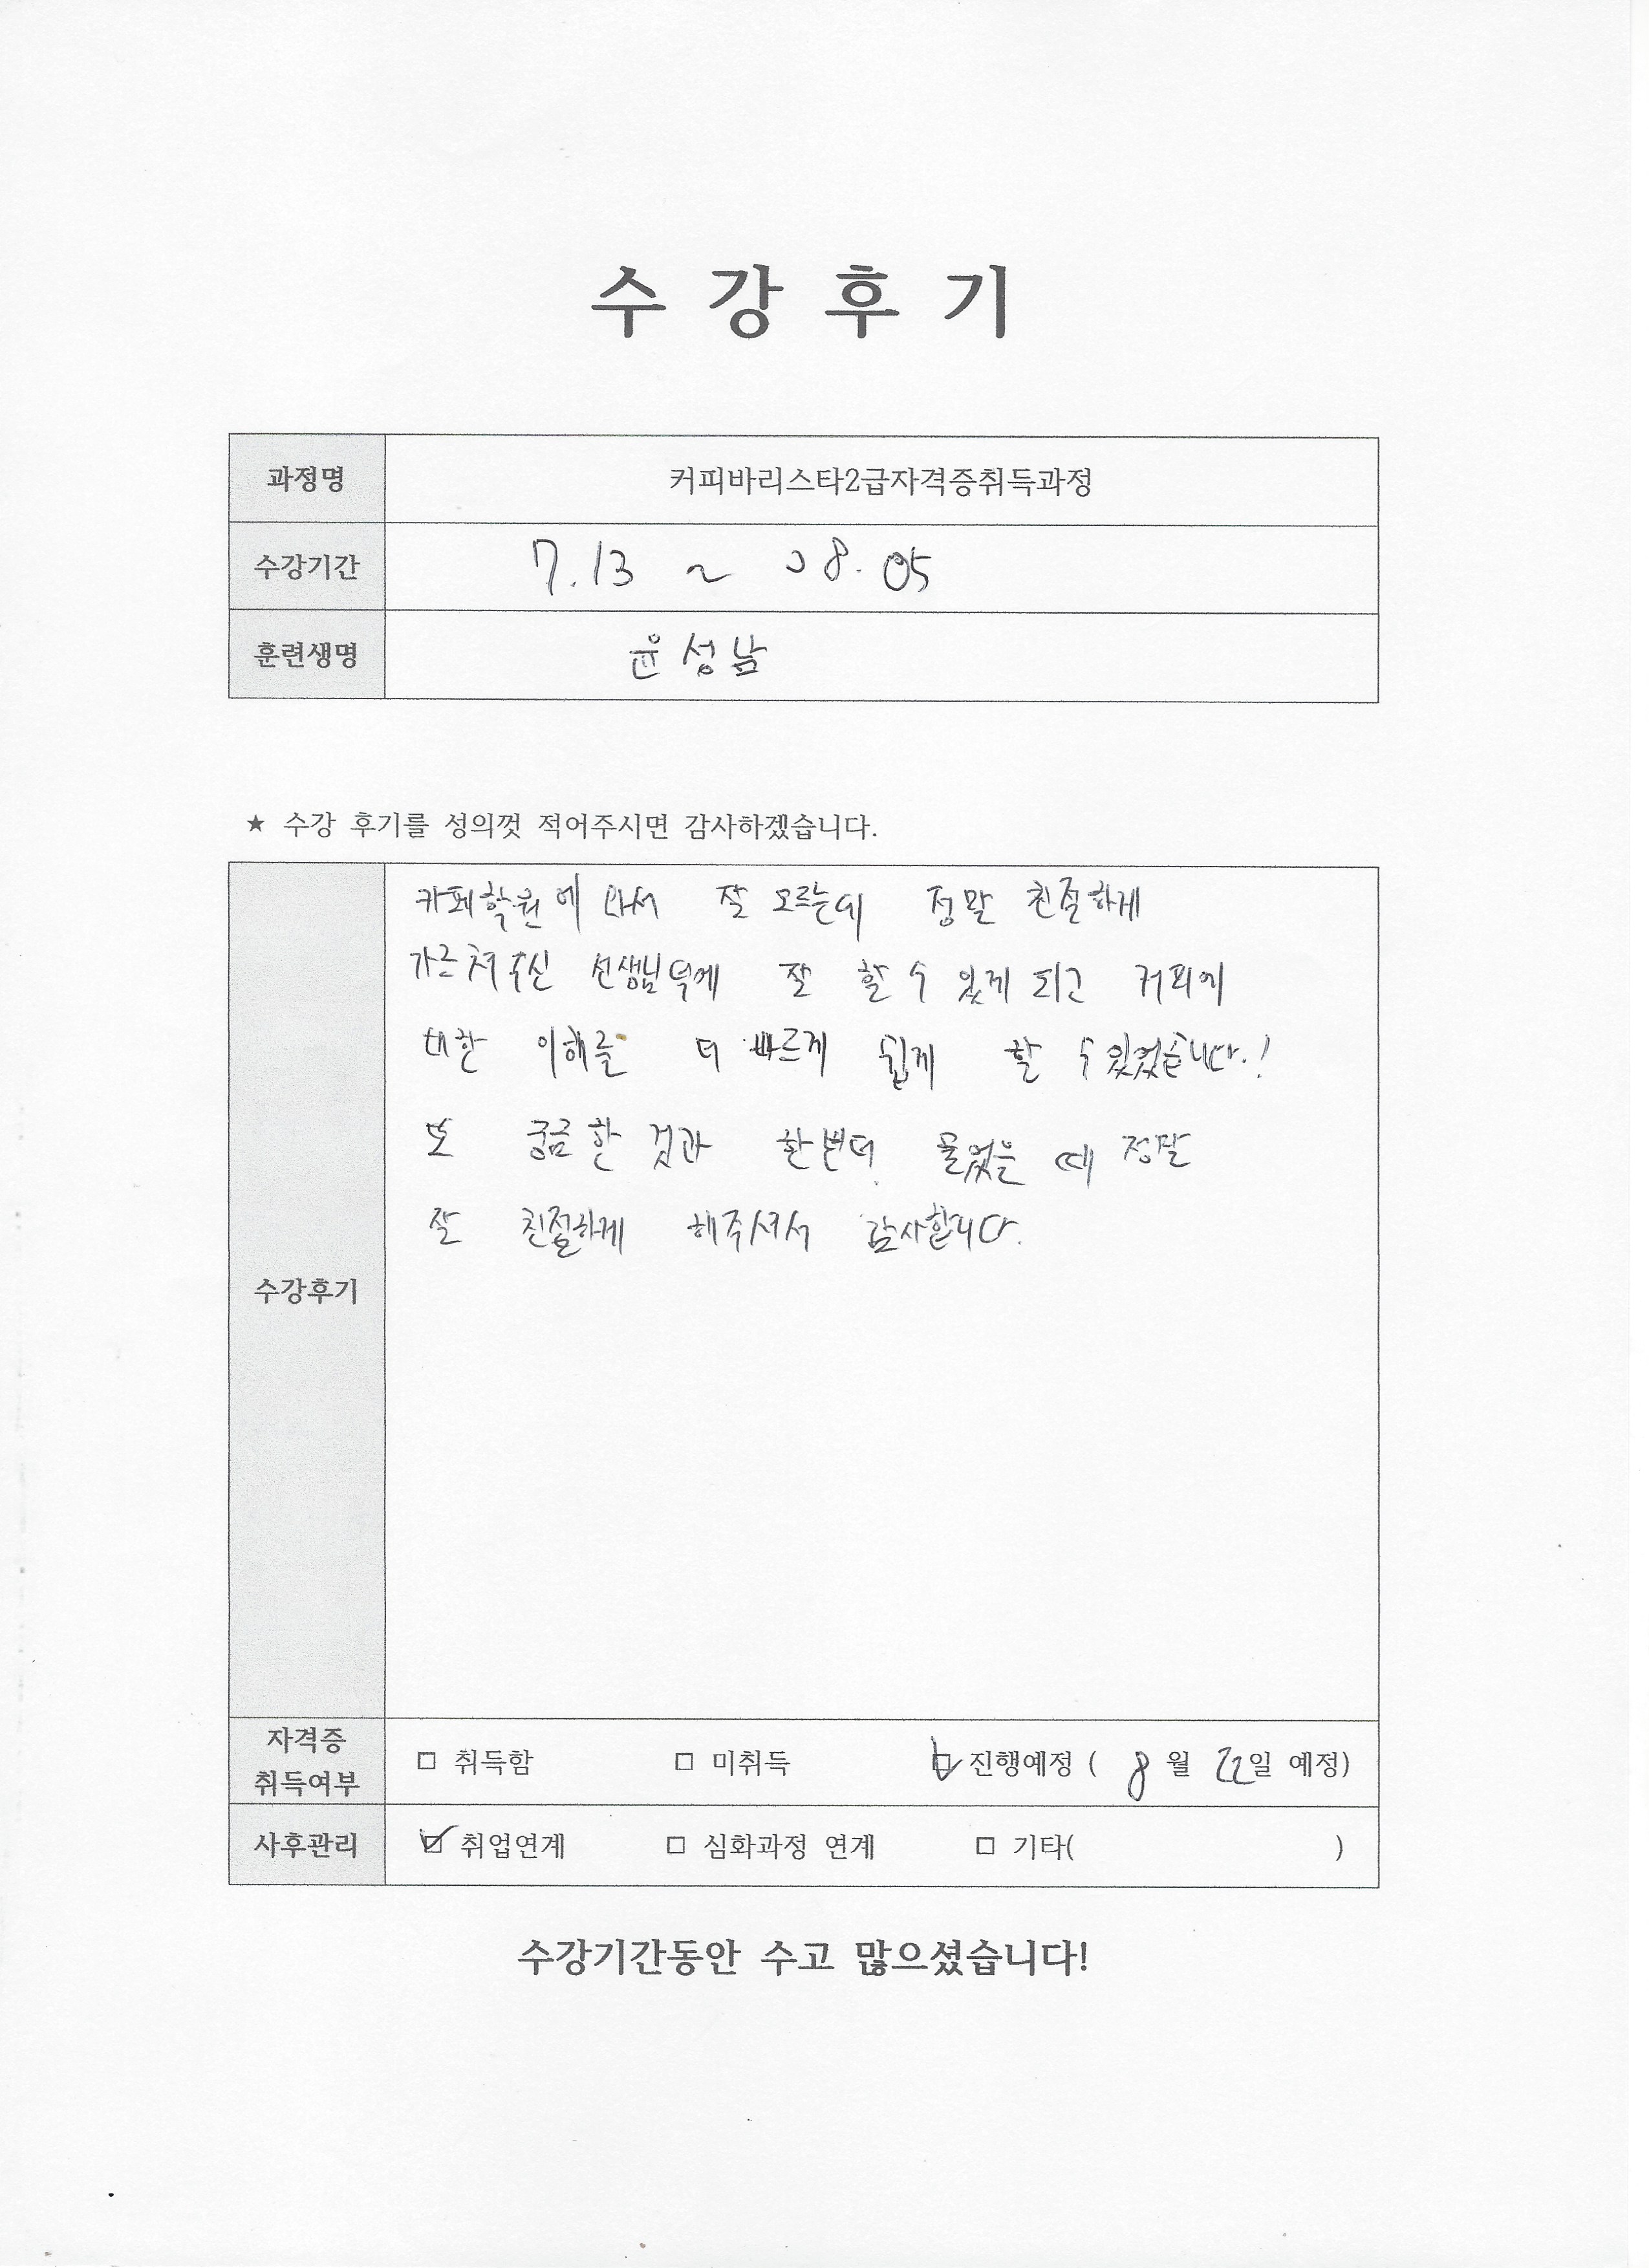 수 강 후 기
과정명 커피바리스타2급자격증취득과정
수강기간 7.13 ~ 08.05
훈련생명 윤성남
★ 수강 후기를 성의껏 적어주시면 감사하겠습니다.
카페학원에 와서 잘 모르는데 정말 친절하게
가르쳐주신 선생님덕에 잘 할 수 있게 되고 커피에
대한 이해를 더 빠르게 쉽게 할 수있었습니다.!
또 궁금한 것과 한번더 물었을 때 정말
잘 친절하게 해주셔서 감사합니다.
수강후기
자격증
취득여부 □ 취득함 □ 미취득 ☑ 진행예정 ( 8 월 22일 예정)
사후관리 ☑ 취업연계 □ 심화과정 연계 □ 기타( )
수강기간동안 수고 많으셨습니다!